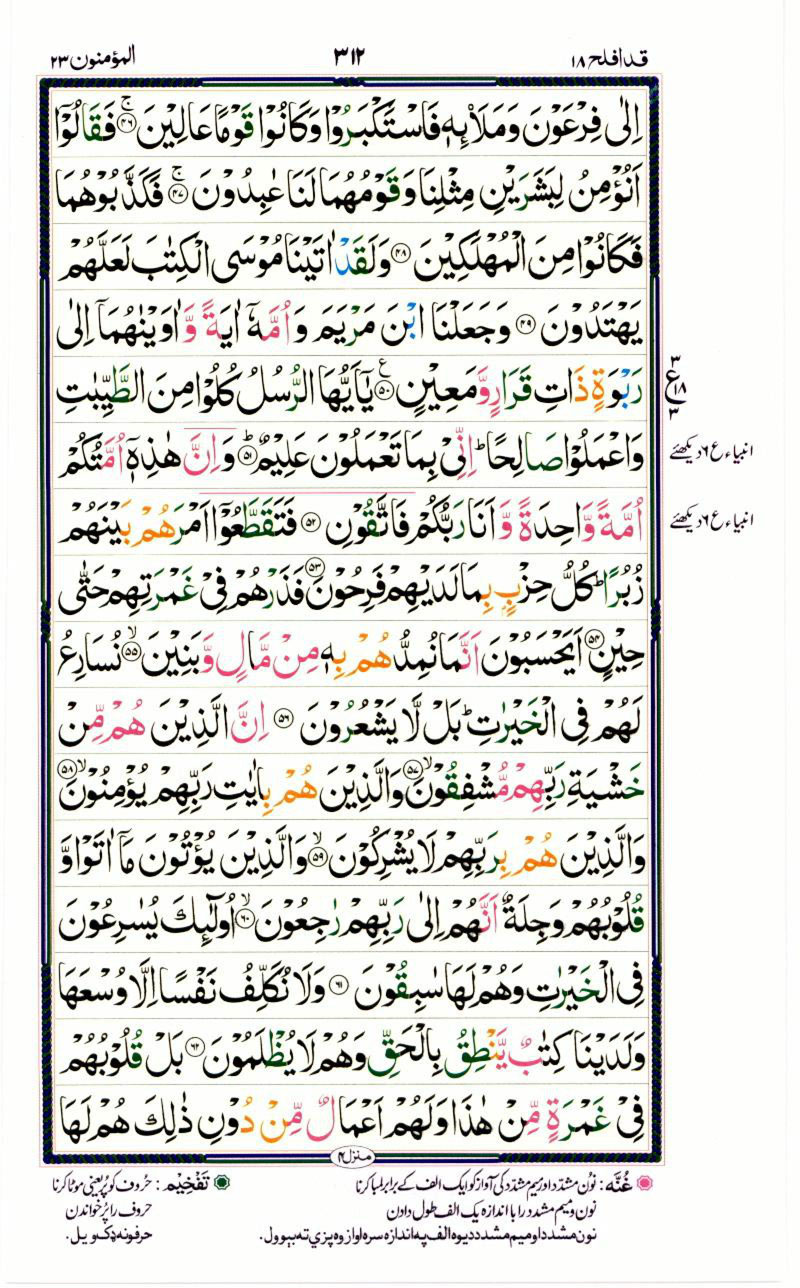 قد افلح ۱۸
۳۱۲
المؤمنون ۲۳
اِلٰى فِرْعَوْنَ وَمَلَا۟ئِهٖ فَاسْتَكْبَرُوْا وَكَانُوْا قَوْمًا عَالِيْنَ ۚ‏﴿۴۶﴾ فَقَالُوْۤا
اَنُؤْمِنُ لِبَشَرَيْنِ مِثْلِنَا وَقَوْمُهُمَا لَنَا عٰبِدُوْنَ ۚ‏﴿۴۷﴾ فَكَذَّبُوْهُمَا
فَكَانُوْا مِنَ الْمُهْلَكِيْنَ ﴿۴۸﴾ وَلَقَدْ اٰتَيْنَا مُوْسَى الْكِتٰبَ لَعَلَّهُمْ
يَهْتَدُوْنَ ﴿۴۹﴾ وَجَعَلْنَا ابْنَ مَرْيَمَ وَاُمَّهٗۤ اٰيَةً وَّاٰوَيْنٰهُمَاۤ اِلٰى
رَبْوَةٍ ذَاتِ قَرَارٍ وَّمَعِيْنٍ ﴿۵۰﴾ ع يٰۤاَيُّهَا الرُّسُلُ كُلُوْا مِنَ الطَّيِّبٰتِ
۳
ع
۱۸
۳
وَاعْمَلُوْا صَالِحًا ؕ اِنِّىْ بِمَا تَعْمَلُوْنَ عَلِيْمٌ ؕ‏﴿۵۱﴾ وَاِنَّ هٰذِهٖۤ اُمَّتُكُمْ
انبیاء ع ۶ دیکھئے
اُمَّةً وَّاحِدَةً وَّاَنَا رَبُّكُمْ فَاتَّقُوْنِ ﴿۵۲﴾ فَتَقَطَّعُوْۤا اَمْرَهُمْ بَيْنَهُمْ
انبیاء ع ۶ دیکھئے
زُبُرًا ؕ كُلُّ حِزْبٍۭ بِمَا لَدَيْهِمْ فَرِحُوْنَ ﴿۵۳﴾ فَذَرْهُمْ فِىْ غَمْرَتِهِمْ حَتّٰى
حِيْنٍ ﴿۵۴﴾ اَيَحْسَبُوْنَ اَنَّمَا نُمِدُّهُمْ بِهٖ مِنْ مَّالٍ وَّبَنِيْنَ ۙ‏﴿۵۵﴾ نُسَارِعُ
لَهُمْ فِى الْخَيْرٰتِ ؕ بَلْ لَّا يَشْعُرُوْنَ ﴿۵۶﴾ اِنَّ الَّذِيْنَ هُمْ مِّنْ
خَشْيَةِ رَبِّهِمْ مُّشْفِقُوْنَ ۙ‏﴿۵۷﴾ وَالَّذِيْنَ هُمْ بِاٰيٰتِ رَبِّهِمْ يُؤْمِنُوْنَ ۙ‏﴿۵۸﴾
وَالَّذِيْنَ هُمْ بِرَبِّهِمْ لَا يُشْرِكُوْنَ ۙ‏﴿۵۹﴾ وَالَّذِيْنَ يُؤْتُوْنَ مَاۤ اٰتَوْا وَّ
قُلُوْبُهُمْ وَجِلَةٌ اَنَّهُمْ اِلٰى رَبِّهِمْ رٰجِعُوْنَ ۙ‏﴿۶۰﴾ اُولٰٓئِكَ يُسٰرِعُوْنَ
فِى الْخَيْرٰتِ وَهُمْ لَهَا سٰبِقُوْنَ ﴿۶۱﴾ وَلَا نُكَلِّفُ نَفْسًا اِلَّا وُسْعَهَا
وَلَدَيْنَا كِتٰبٌ يَّنْطِقُ بِالْحَقِّ وَهُمْ لَا يُظْلَمُوْنَ ﴿۶۲﴾ بَلْ قُلُوْبُهُمْ
فِىْ غَمْرَةٍ مِّنْ هٰذَا وَلَهُمْ اَعْمَالٌ مِّنْ دُوْنِ ذٰلِكَ هُمْ لَهَا
منزل ۴
غُنَّه: نون مشدّد اور میم مشدّد کی آواز کو ایک الف کے برابر لمبا کرنا
نون و میم مشدد را با اندازہ یک الف طول دادن
نون مشدد او میم مشدد دیوہ الف په اندازه سره اواز وه پزې ته بېوول.
تَفْخِیْم: حروف کو پُر یعنی موٹا کرنا
حروف را پُر خواندن
حرفونه ډک ویل.